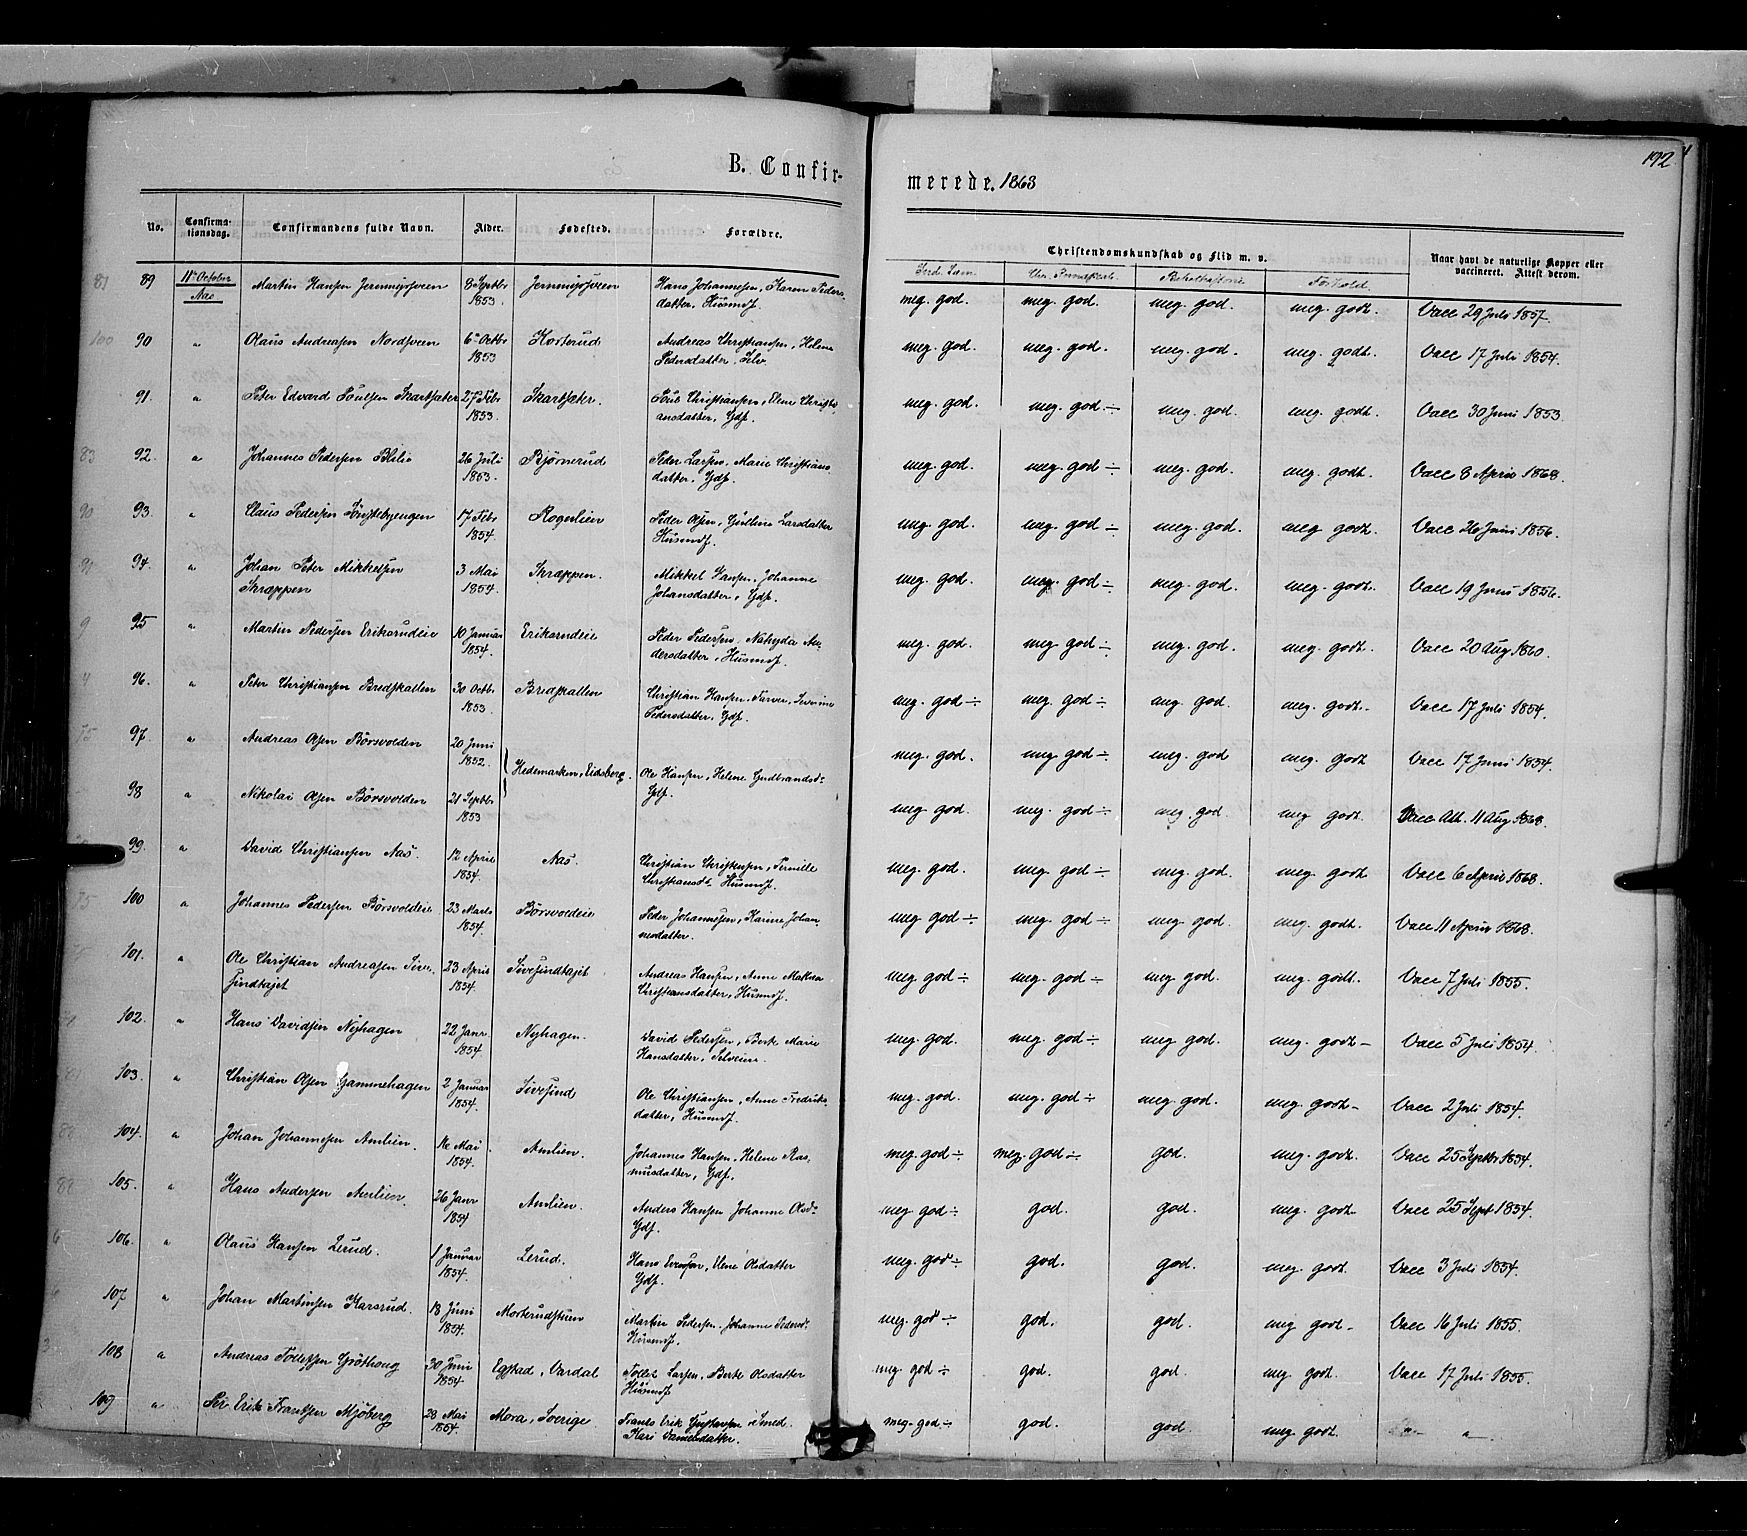 192
B. Confir-
merede. 1868
No.
Confirma-
tionsdag.
Confirmandens fulde Navn.
Alder.
Fødested.
Forældre.
Christendomskundskab og Flid m. v.
Naar havt de naturlige Kopper eller
vaccineret. Attest derom.
89 11te October Martin Hansen 8 Septbr Hans Johannesen, Karen Peders- meg. god. meg. god. meg. god. meg. godt. Vacc 29 Juli 1857.
Aas 1853. datter, Husmdf.
90 " Olaus Andreasen Nordsveen 6te Octbr Kosterud Andreas Christiansen, Helene meg. god. meg. god. meg. god. meg. godt. Vacc 17 Juli 1854.
1853 Pedersdatter, Selv.
91. " Peter Edvard Poulsen Skartsæter 27 Febr Skartsæter. Poul Christiansen, Elene Christi- meg. god. meg. god ÷ meg. god. meg. godt. Vacc 30 Juni 1853.
1853. ansdatter, Gdf.
92. " Johannes Pedersen Blilie 26 Juli Bjørnerud Peder Larsen, Marie Christians- meg. god. meg. god ÷ meg. god. meg. godt. Vacc 8 April 1868.
1853. datter, Gdf.
93. " Claus Pedersen 17 Febr Rognlien Peder Olsen, Gulline Larsdatter meg. god. meg. god ÷ meg. god. meg. godt. Vacc 26 Juni 1856.
1854 Husmdf.
94. " Johan Peter Mikkelsen 3 Mai Skræppen. Mikkel Hansen, Johanne meg. god. meg. god ÷ meg. god. meg. godt. Vacc 19 Juni 1856.
Skræppen 1854. Johansdatter, Gdf.
95 " Martin Pedersen Eriksrudeie 10 Januar Eriksrudeie Peder Pedersen, An- meg. god. meg. god ÷ meg. god. meg. godt. Vacc 20 Aug 1860.
1854. dersdatter, Husmdf.
96. " Peter Christiansen Bredskallen 30 Octbr Bredskallen Christian Hansen, Severine meg. god ÷ meg. god ÷ meg. god. meg. godt. Vacc 17 Juli 1854.
1853. Pedersdatter, Gdf.
97. " Andreas Olsen Børsvolden 20 Juni meg. god. meg. god ÷ meg. god meg. godt Vacc 17 Juni 1854.
1852. Hedemarken, Eidsberg. Ole Hansen, Helene Gudbrandsd.
98 " Nikolai Olsen Børsvolden 21 Septbr Gdf. meg. god. meg. god ÷ meg. god meg godt. Vacc Att. 11 Aug 1868.
1853
99. " David Christiansen Aas. 12 April Aas. Christian Christensen, Pernille meg. god. meg. god ÷ meg. god. meg. godt Vacc 6 April 1868.
1854. Christiansdt. Husmdf.
100 " Johannes Pedersen Børsvoldeie 23 Marts Børsvoldeie Peder Johannesen, Karine Johan- meg. god ÷ meg. god ÷ meg. god meg. godt. Vacc 11 April 1868.
1854. nesdatter.
101. " Ole Christian Andreasen Sive- 23 April Sivesindtajet Andreas Hansen, Anne meg. god ÷ meg. god ÷ meg. god. meg. godt. Vacc 7 Juli 1855.
sindtajet 1854 Christiansdatter, Husmdf.
102. " Hans Davidsen Nyhagen 22 Janr Nyhagen. David Pedersen, Berte Marie meg. god. meg. god ÷ meg. god. meg. godt – Vacc 5 Juli 1854.
1854 Hansdatter, Selveiere.
103. " Christian Olsen Gammehagen 2 Januar Sivesind Ole Christiansen, Anne Fredriks- meg. god. meg. god ÷ meg. god. meg. godt – Vacc 2 Juli 1854.
1854. datter, Husmdf.
104. " Johan Johannesen Amlien. 16 Mai Amlien. Johannes Hansen, Helene Ras- meg. god ÷ meg. god ÷ god. meg. godt. Vacc 25 Septbr 1854.
1854. musdatter, Gdf.
105. " Hans Andersen Amlien. 26 Janr Amlien. Anders Hansen Johanne Olsd. meg. god ÷ god. god. meg. godt. Vacc 25 Sept 1854.
1854 Gdf.
106. " Olaus Hansen Lerud. 1 Januar Lerud. Hans Evensen, Elene Olsdatter meg. god ÷ god. god. meg. godt Vacc 3 Juli 1854.
1854. Gdf.
107 " Johan Martinsen Karsrud. 18 Juni Morterudstuen Martin Pedersen, Johanne Pedersd. meg. god ÷ god. god. meg godt – Vacc 16 Juli 1855.
1854. Husmdf.
108 " Andreas Tollefsen Grøthoug 30 Juni Egstad, Vardal Tollef Larsen, Berte Olsdatter meg. god ÷ god. god meg godt. Vacc 17 Juli 1855.
1854 Husmdf
109 " Per Erik Frantsen Mjøberg 28 Mai Mora, Sverige Frants Erik Gustavsen Smed. meg. god ÷ god. god. meg godt.
1854. Kari Danielsdatter.